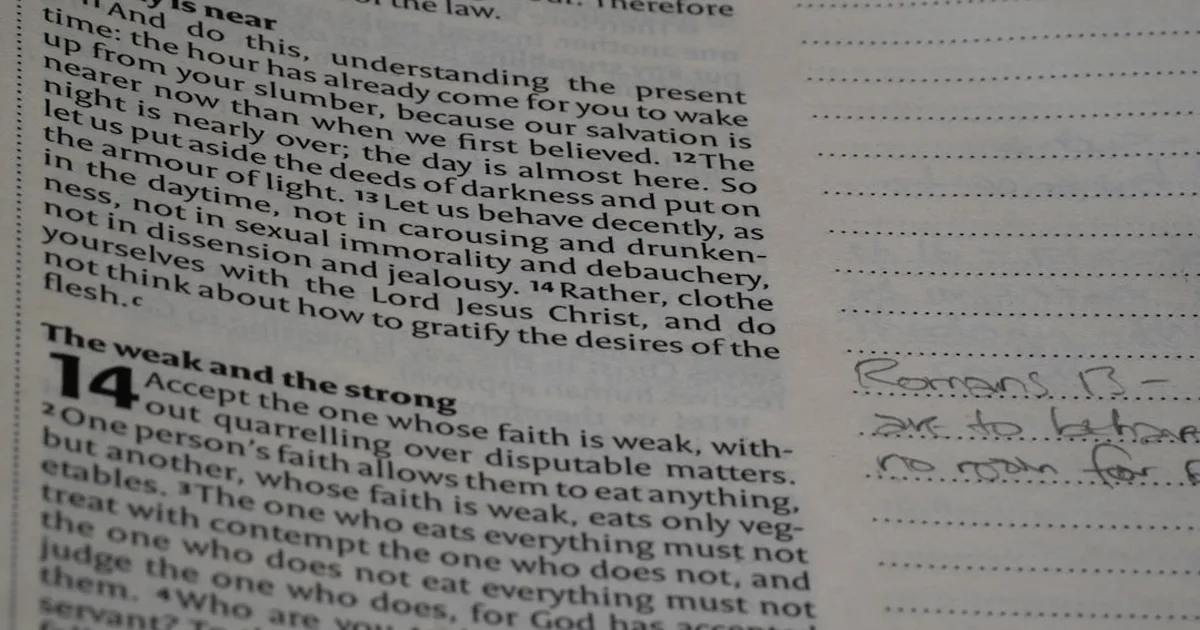 the law.
Therefore
y is near
11 And do this, understanding the present
time: the hour has already come for you to wake
up from your slumber, because our salvation is
nearer now than when we first believed. 12 The
night is nearly over; the day is almost here. So
let us put aside the deeds of darkness and put on
the armour of light. 13 Let us behave decently, as
in the daytime, not in carousing and drunken-
ness, not in sexual immorality and debauchery,
not in dissension and jealousy. 14 Rather, clothe
yourselves with the Lord Jesus Christ, and do
not think about how to gratify the desires of the
flesh.c
The weak and the strong
14 Accept the one whose faith is weak, with-
out quarrelling over disputable matters.
2 One person's faith allows them to eat anything,
but another, whose faith is weak, eats only veg-
etables. 3 The one who eats everything must not
treat with contempt the one who does not, and
the one who does not eat everything must not
judge the one who does, for God has accepted
them. 4 Who are you
servant?
Romans 13 -
are to behave
no room for